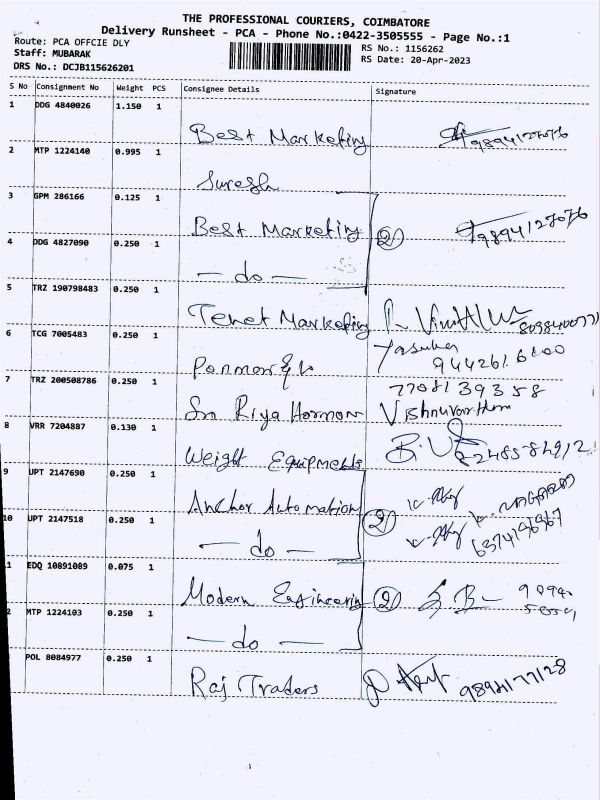 THE PROFESSIONAL COURIERS, COIMBATORE
Delivery Runsheet - PCA - Phone No.:0422-3505555 - Page No.:1
Route: PCA OFFCIE DLY
Staff: MUBARAK
DRS No.: DCJB115626201
RS No.: 1156262
RS Date: 20-Apr-2023
S No Consignment No Weight PCS Consignee Details Signature
1 DDG 4840026 1.150 1
Best Marketing 9894127076
2 MTP 1224140 0.995 1
Suresh
3 GPM 286166 0.125 1
Best Marketing 2 9894127076
4 DDG 4827090 0.250 1
— do —
5 TRZ 190798483 0.250 1
Tenet Marketing
6 TCG 7005483 0.250 1
7 TRZ 200508786 0.250 1
7708139358
Sri Riya Hormon Vishnuvardhan
8 VRR 7204887 0.130 1
Weight Equipments
9 UPT 2147690 0.250 1
Anchor Automation 2
10 UPT 2147518 0.250 1
— do — 6374196967
1 EDQ 10891089 0.075 1
Modern Engineering 2
2 MTP 1224103 0.250 1
— do —
POL 8084977 0.250 1
Raj Traders 9894177128